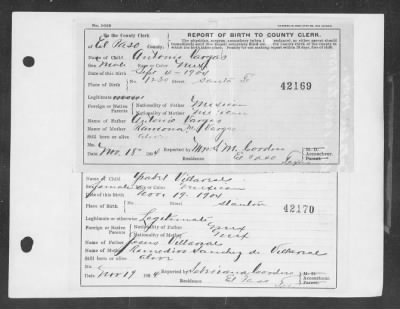 To the County Clerk
REPORT OF BIRTH TO COUNTY CLERK.
El Paso County:
Name of Child Antonio Vargas
Sex Male Race or Color Mex
Date of this Birth Sept 4 - 1904
Place of Birth: No. 30 Santa Fe
42169
Legitimate
Foreign or Native Parents Nationality of Father Mexican
Nationality of Mother Mexican
Name of Father Antonio Vargas
Name of Mother Ramona M. Vargas
Still or born alive
Date Nov 18 1904 Reported by Mrs. M. Cordero M. D. Accoucheur. Parent.
Residence El Paso Tex
Name of Child Ysabel Villareal
Sex female Race or Color Mexican
Date of this Birth Nov 19 - 1904
Place of Birth: Stanton
42170
Legitimate or otherwise Legitimate
Foreign or Native Parents Nationality of Father Mex
Nationality of Mother Mex
Name of Father Villareal
Name of Mother Remedios Sanchez de Villareal
Still or born alive
Date Nov 19 1904 Reported by Cordero M. D. Accoucheur. Parent.
Residence El Paso Tex